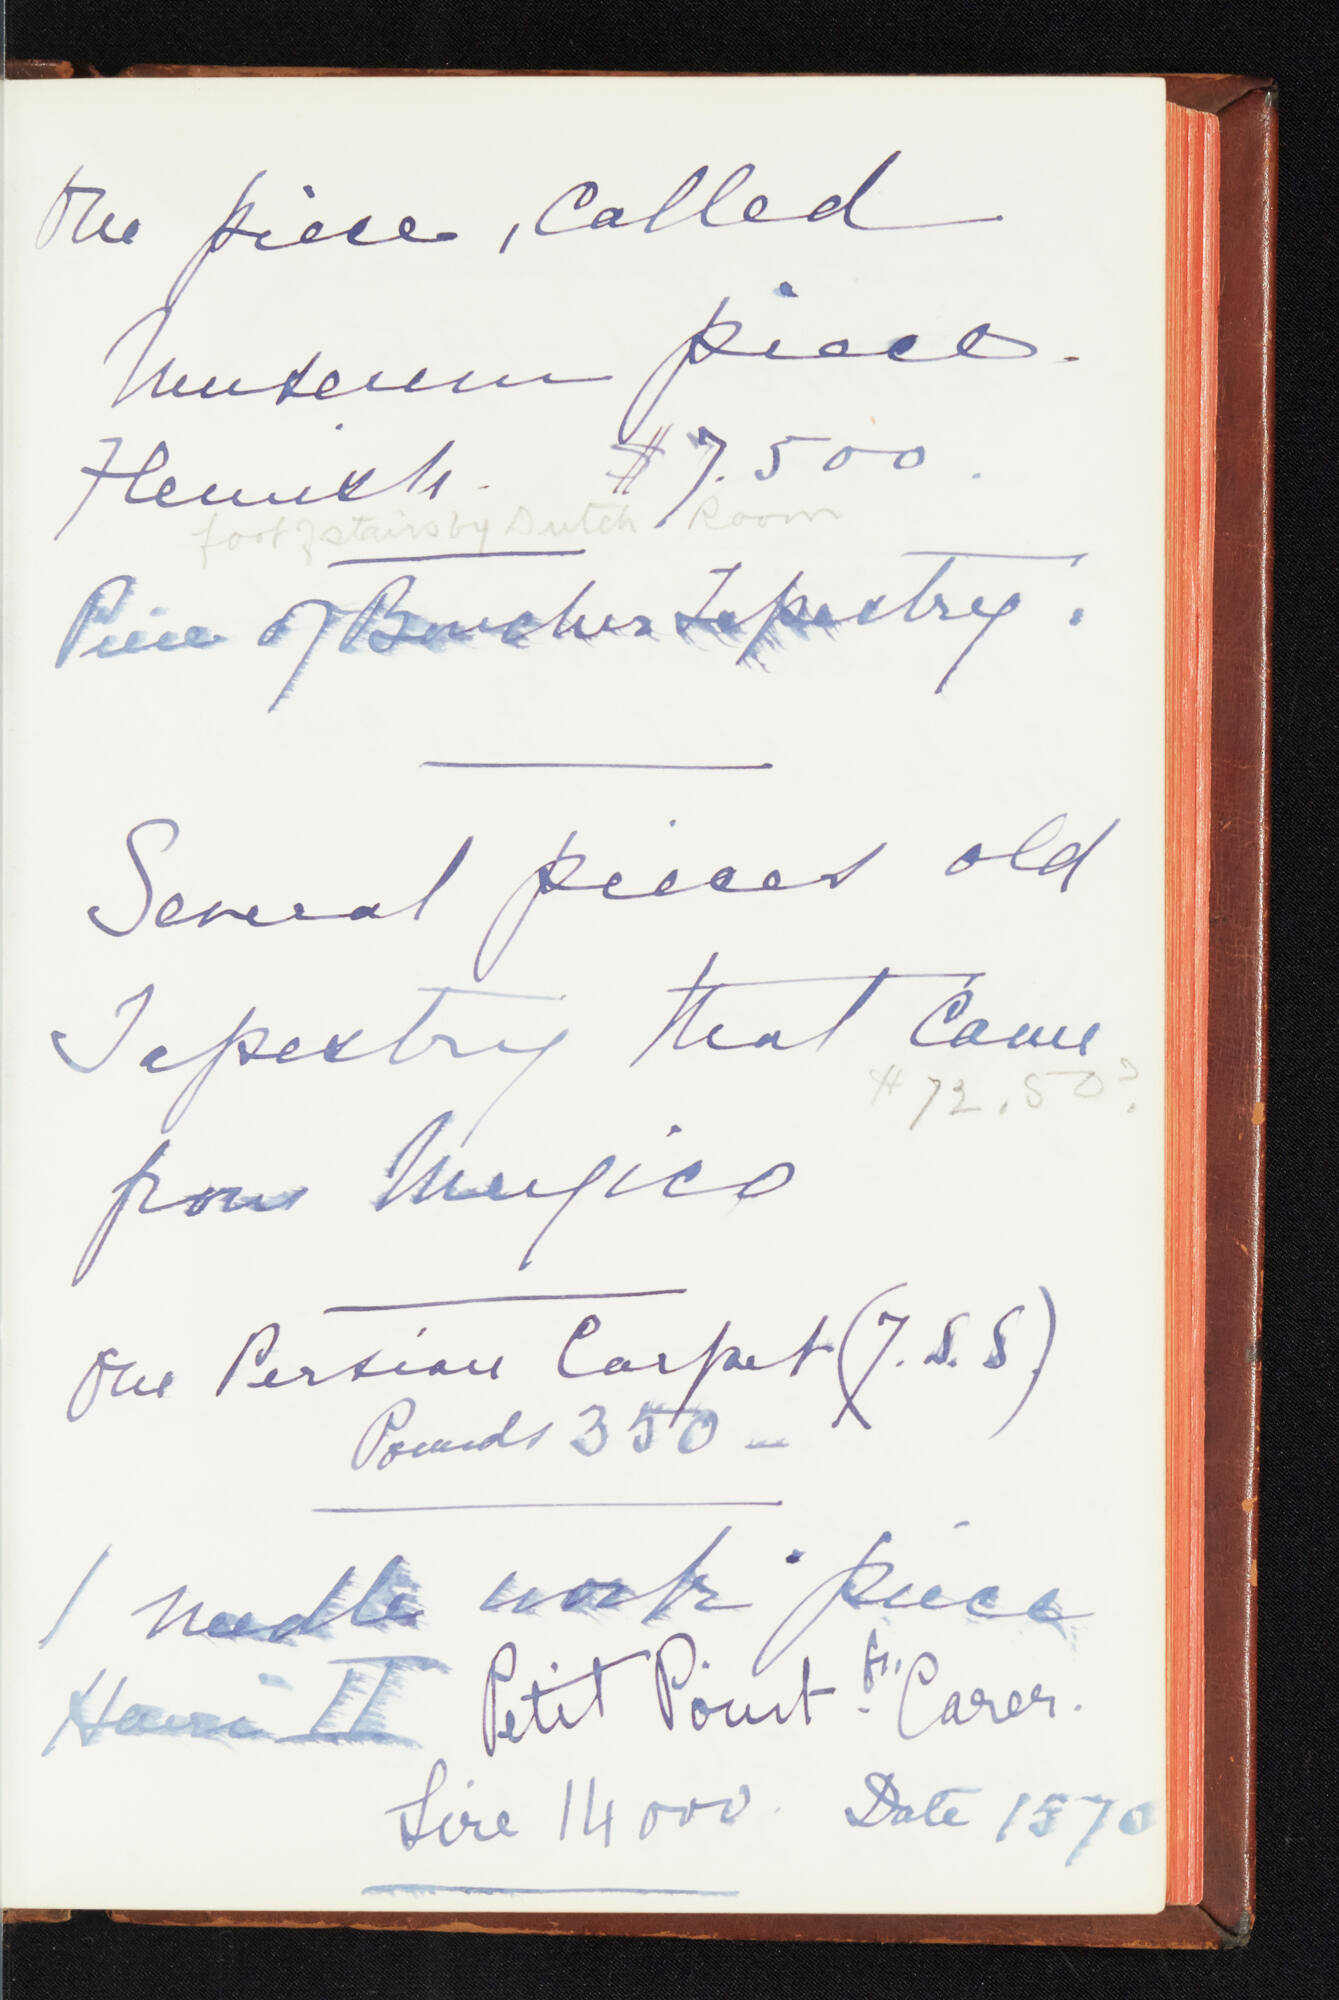 One piece, Called
Museum piece.
Flemish. $7.500.
foot of stairs by Dutch Room
Piece of Boucher Tapestry.
Several pieces old
Tapestry that Came
$72.50?
from Mexico
One Persian Carpet (J.S.S.)
Pounds 350 —
1 needle work piece
Henri II Petit Point. fr. Carer.
Lire 14000. Date 1570